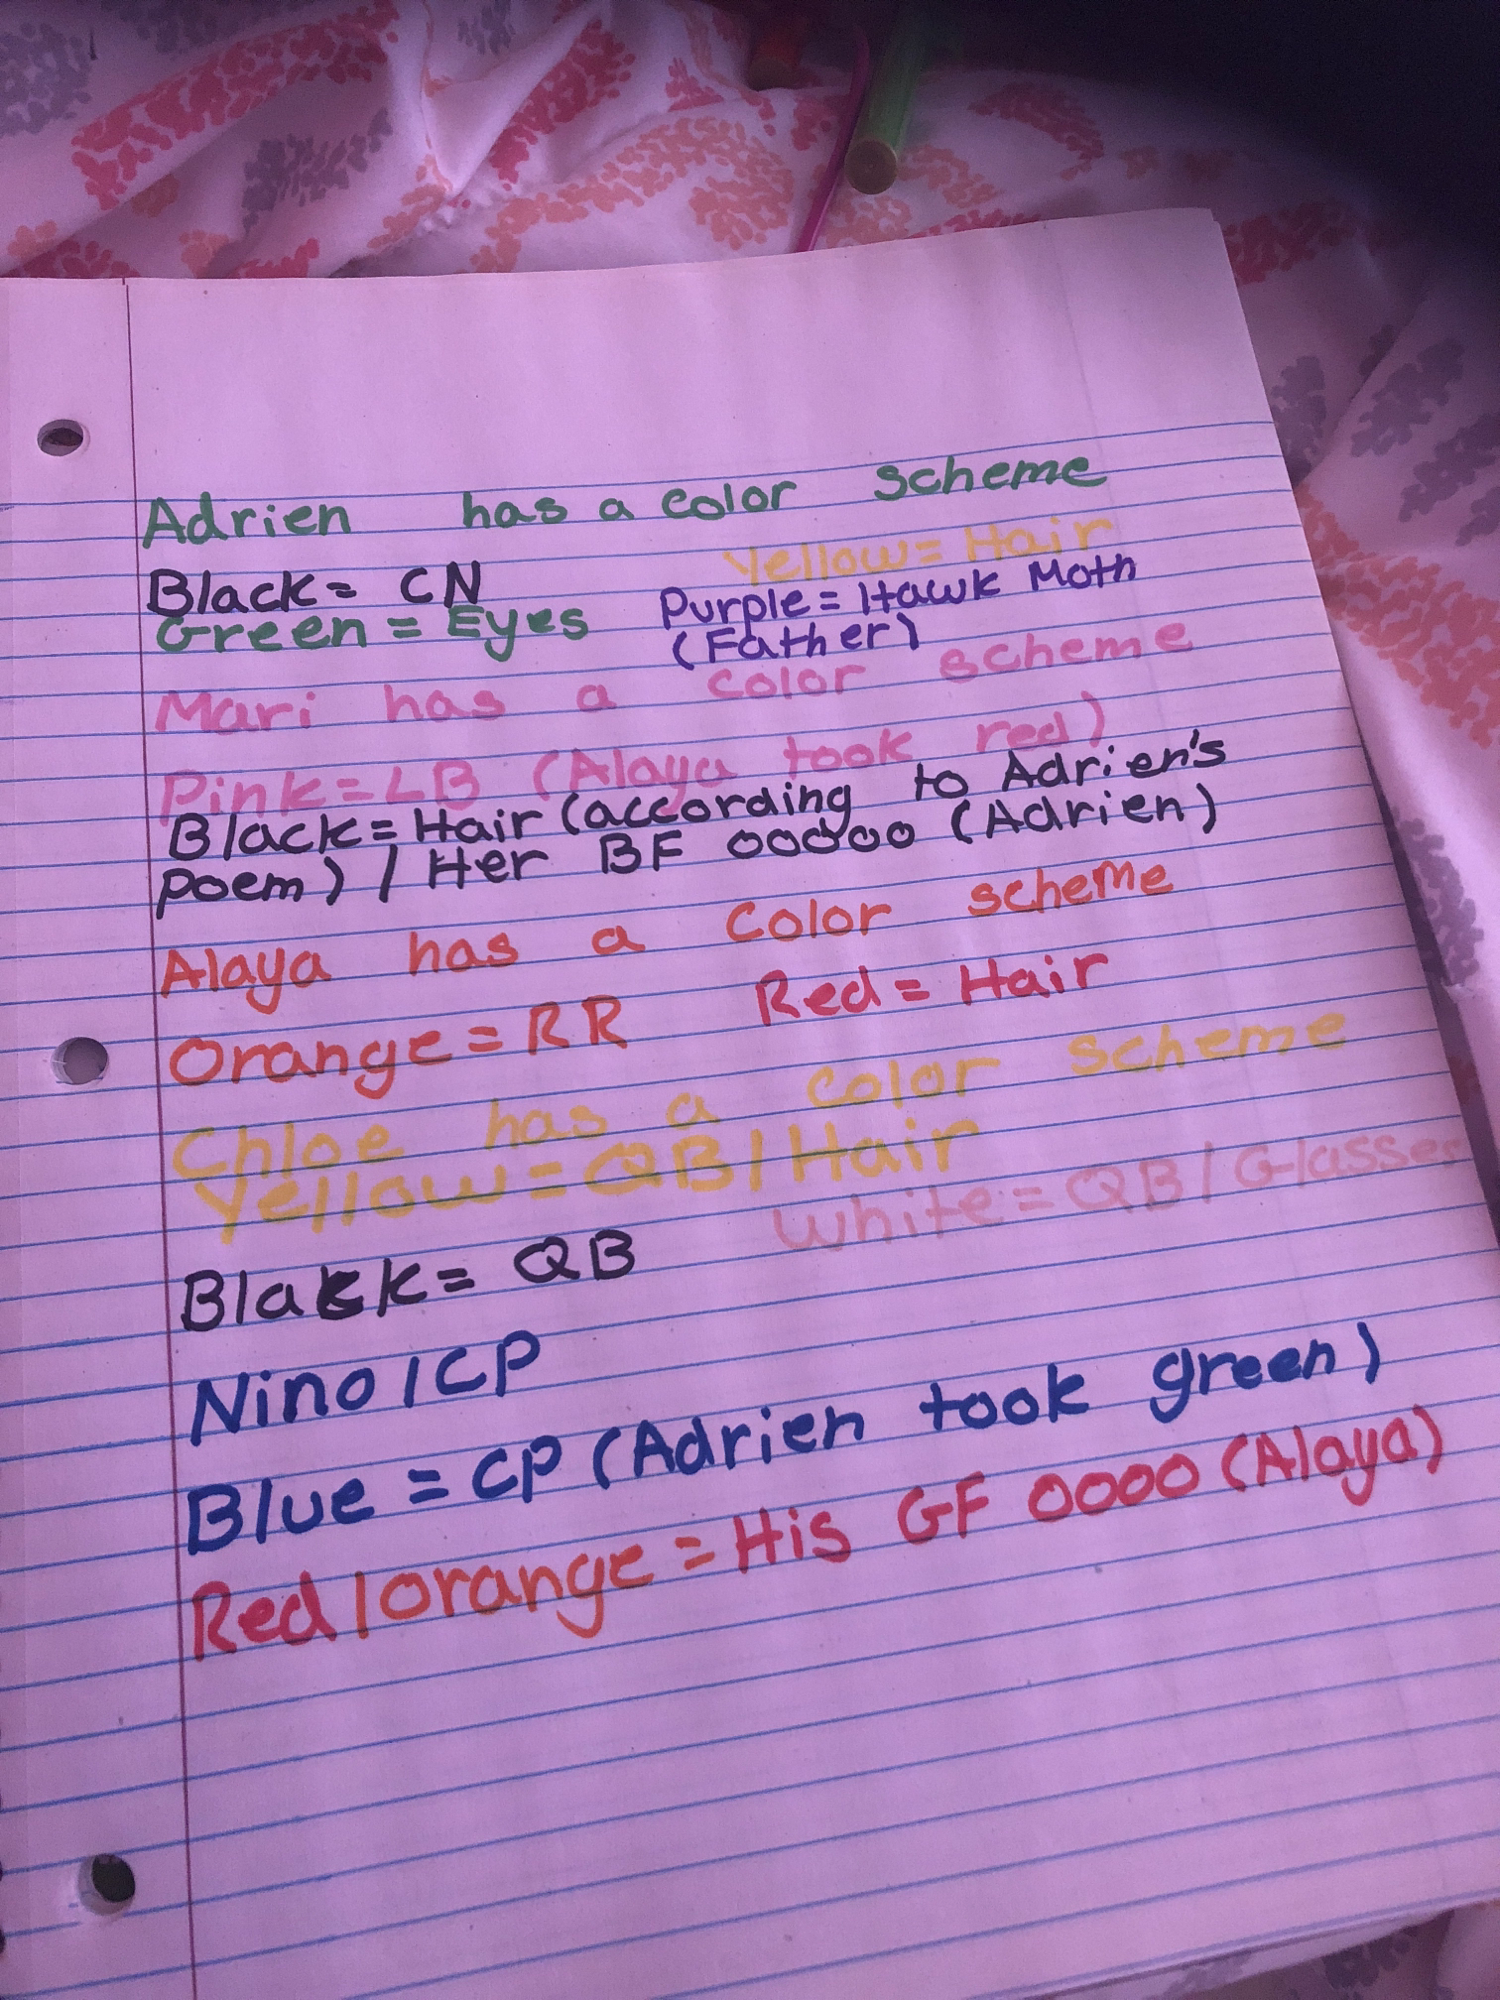 Adrien has a color scheme
Yellow = Hair
Black = CN
Green = Eyes
Purple = Hawk Moth
(Father)
Mari has a color scheme
Pink = LB (Alaya took red)
Black = Hair (according to Adrien's
poem) / Her BF ooooo (Adrien)
Alaya has a color scheme
Orange = RR Red = Hair
Chloe has a color scheme
Yellow = QB / Hair
White = QB / Glasses
Black = QB
Nino / CP
Blue = CP (Adrien took green)
Red / orange = His GF oooo (Alaya)